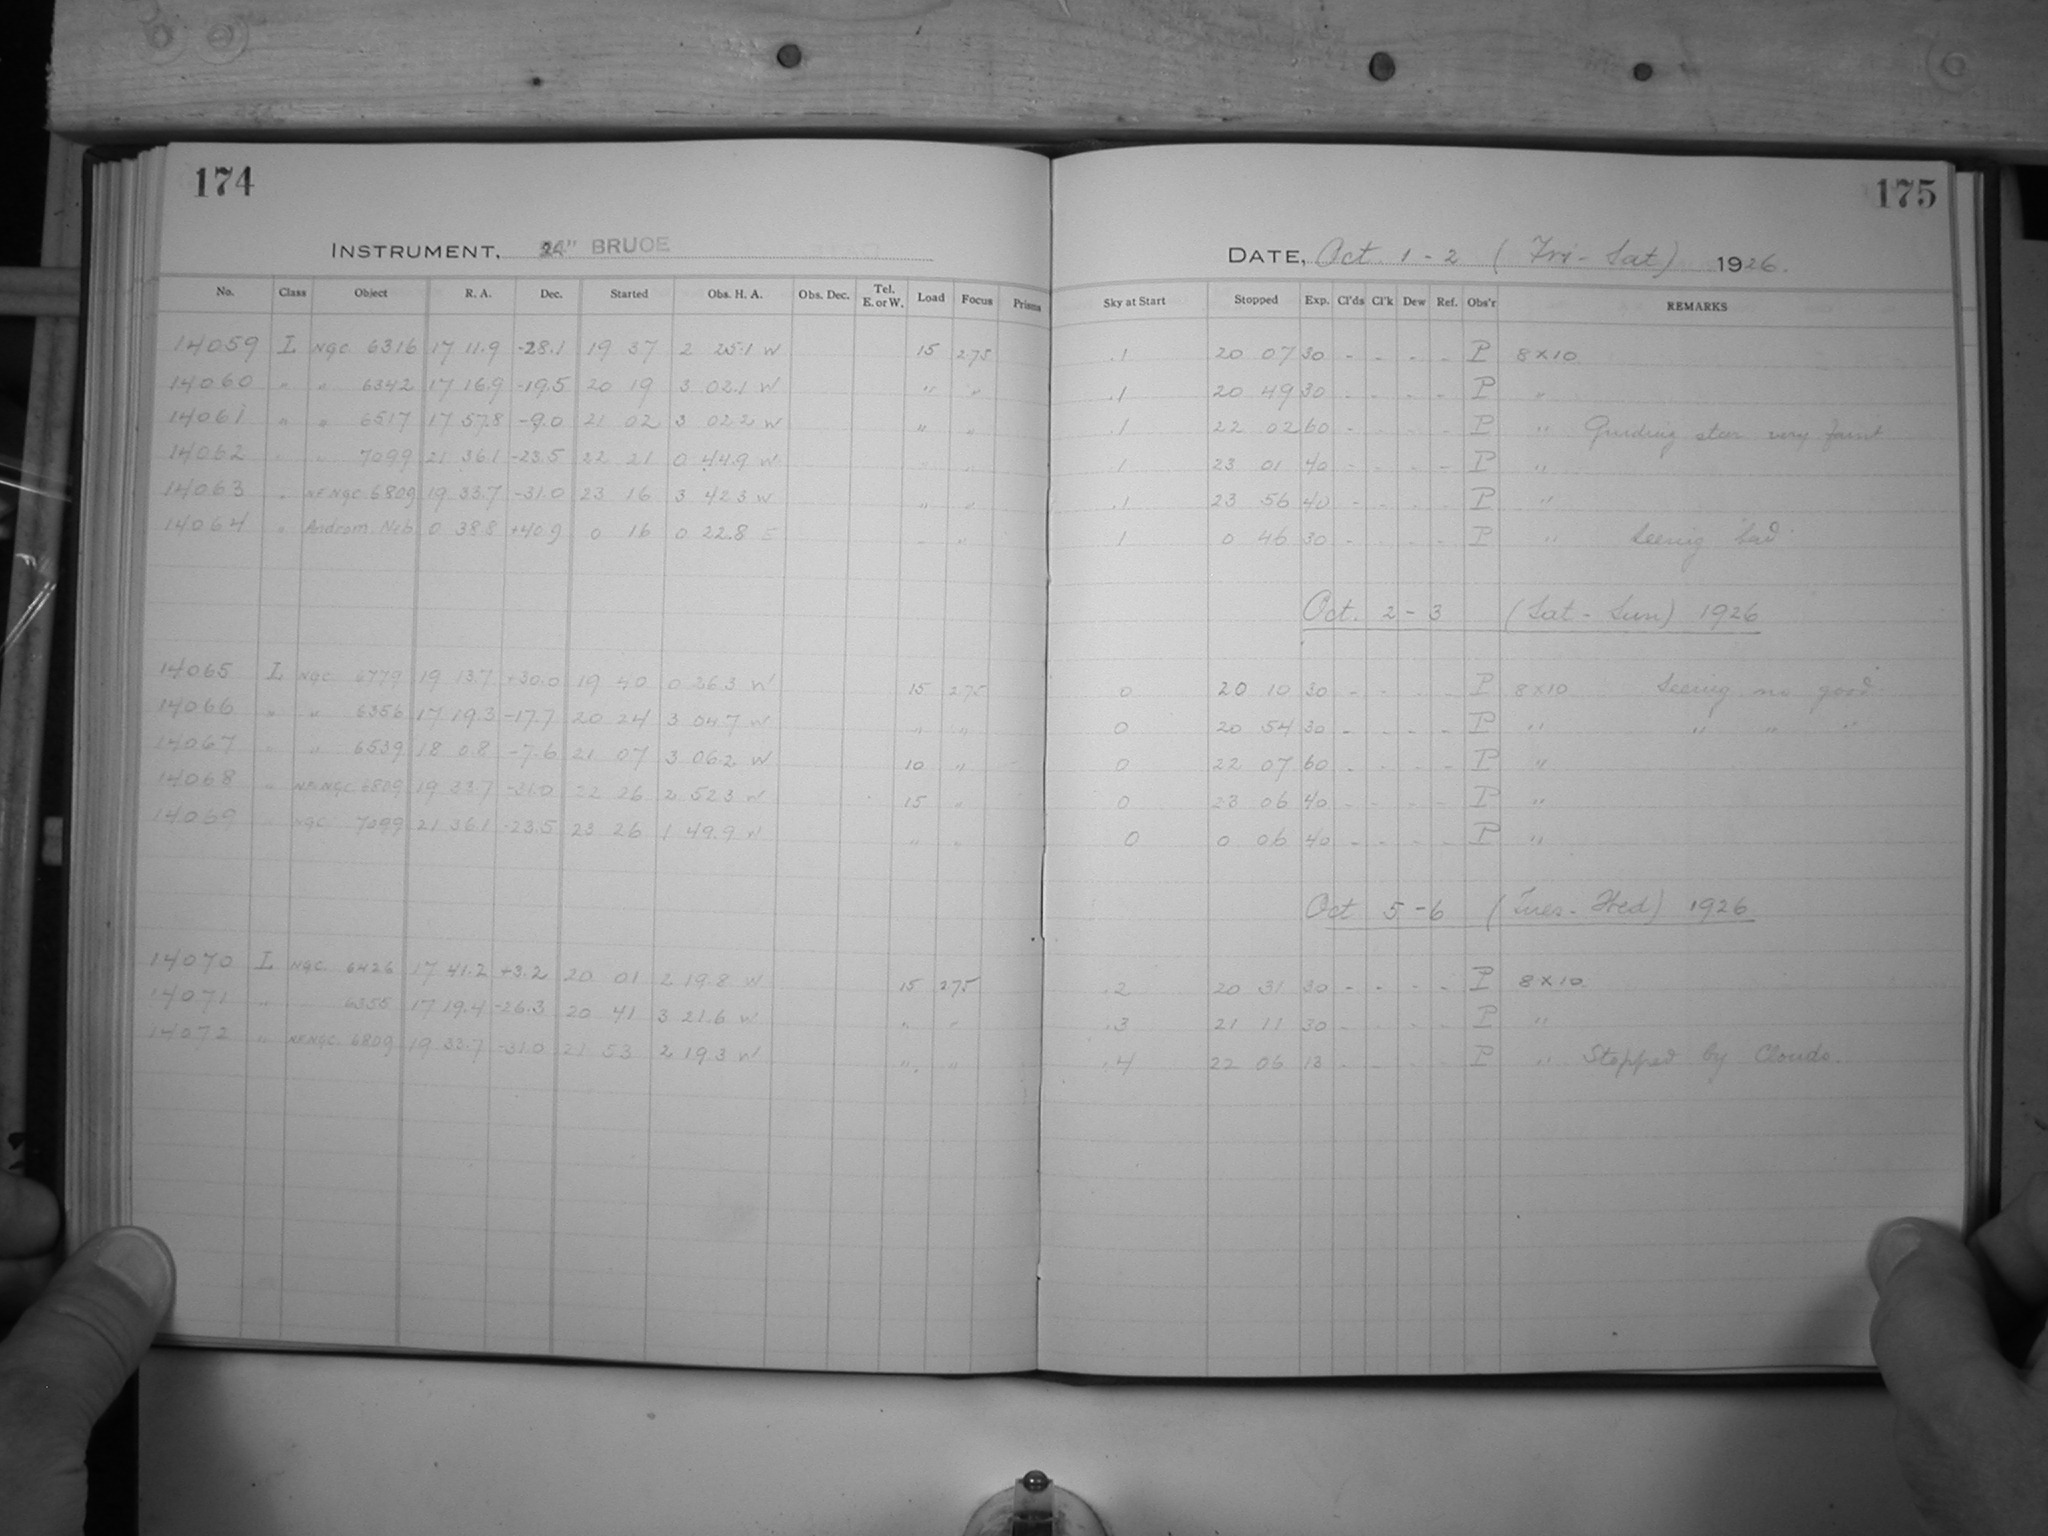 174
175
INSTRUMENT, 24" BRUCE
DATE, Oct 1 - 2 (Fri - Sat) 1926.
No. Class Object R. A. Dec. Started Obs. H. A. Obs. Dec. Tel. E. or W. Load Focus Prisms Sky at Start Stopped Exp. Cl'ds Cl'k Dew Ref. Obs'r REMARKS
14059 L NGC 6316 17 11.9 -28.1 19 37 2 25.1 W 15 2.75 .1 20 07 30 - - - - P 8×10
14060 " " 6342 17 16.9 -19.5 20 19 3 02.1 W " " .1 20 49 30 - - - - P "
14061 " " 6517 17 57.8 -9.0 21 02 3 02.2 W " " .1 22 02 60 - - - - P " Guiding star very faint
14062 " " 7099 21 36.1 -23.5 22 21 0 44.9 W " " .1 23 01 40 - - - - P "
14063 " NF NGC 6809 19 33.7 -31.0 23 16 3 42.3 W " " .1 23 56 40 - - - - P "
14064 " Androm. Neb 0 38.8 +40.9 0 16 0 22.8 E " " .1 0 46 30 - - - - P " Seeing bad
Oct. 2 - 3 (Sat - Sun) 1926
14065 L NGC 6779 19 13.7 +30.0 19 40 0 36.3 W 15 2.75 0 20 10 30 - - - - P 8×10 Seeing no good
14066 " " 6356 17 19.3 -17.7 20 24 3 04.7 W " " 0 20 54 30 - - - - P " " " "
14067 " " 6539 18 0.8 -7.6 21 07 3 06.2 W 10 " 0 22 07 60 - - - - P "
14068 " NF NGC 6809 19 33.7 -31.0 22 26 2 52.3 W 15 " 0 23 06 40 - - - - P "
14069 " NGC 7099 21 36.1 -23.5 23 26 1 49.9 W " " 0 0 06 40 - - - - P "
Oct 5 - 6 (Tues - Wed) 1926
14070 L NGC 6426 17 41.2 +3.2 20 01 2 19.8 W 15 2.75 .2 20 31 30 - - - - P 8×10
14071 " 6355 17 19.4 -26.3 20 41 3 21.6 W " " .3 21 11 30 - - - - P "
14072 " NF NGC 6809 19 33.7 -31.0 21 53 2 19.3 W " " .4 22 06 13 - - - - P " Stopped by Clouds.